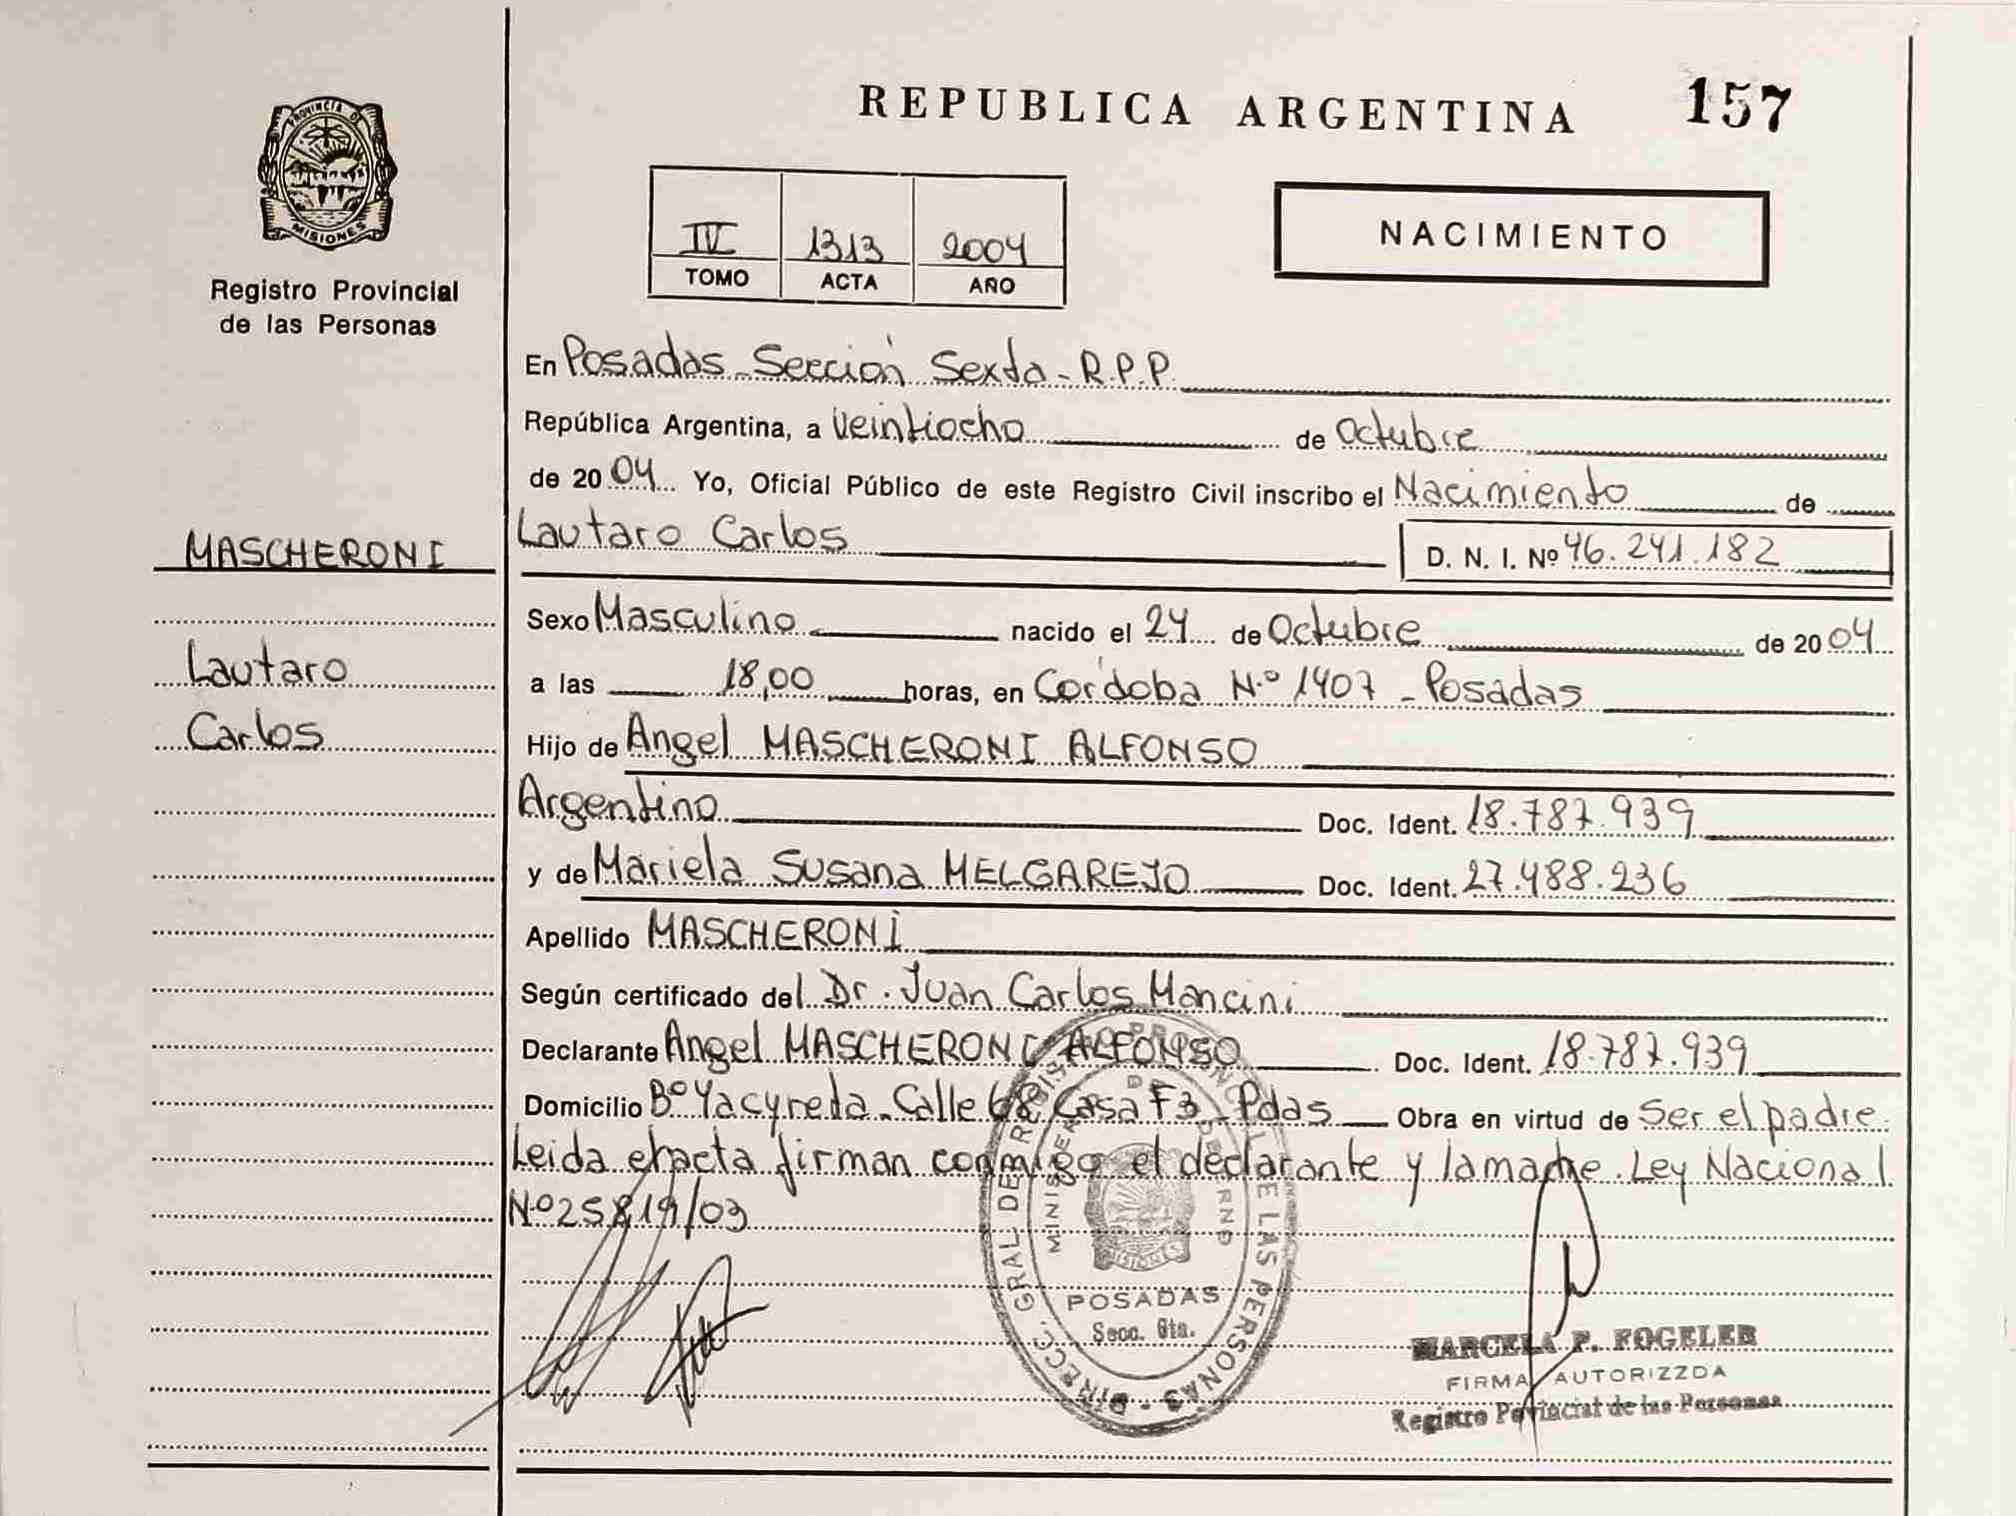 REPUBLICA ARGENTINA 157
PROVINCIA DE
MISIONES
Registro Provincial
de las Personas
IV 1313 2004
TOMO ACTA AÑO
NACIMIENTO
En Posadas - Sección Sexta - R.P.P.
República Argentina, a Veintiocho de Octubre
de 2004 Yo, Oficial Público de este Registro Civil inscribo el Nacimiento de
MASCHERONI
Lautaro Carlos D. N. I. Nº 46.241.182
Sexo Masculino nacido el 24 de Octubre de 2004
Lautaro
a las 18,00 horas, en Córdoba N.º 1407 - Posadas
Carlos
Hijo de Angel MASCHERONI ALFONSO
Argentino Doc. Ident. 18.787.939
y de Mariela Susana MELGAREJO Doc. Ident. 27.488.236
Apellido MASCHERONI
Según certificado del Dr. Juan Carlos Mancini
Declarante Angel MASCHERONI ALFONSO Doc. Ident. 18.787.939
Domicilio Bº Yacyreta - Calle 68 Casa F3 - Pdas Obra en virtud de Ser el padre.
Leida el acta firman conmigo el declarante y la madre. Ley Nacional
Nº 25819/03
DIRECC. GRAL DE REGISTRO PROVINCIAL DE LAS PERSONAS
MINISTERIO DE GOBIERNO
MISIONES
POSADAS
Secc. 6ta.
MARCELA P. FOGELER
FIRMA AUTORIZZDA
Registro Povincial de las Personas